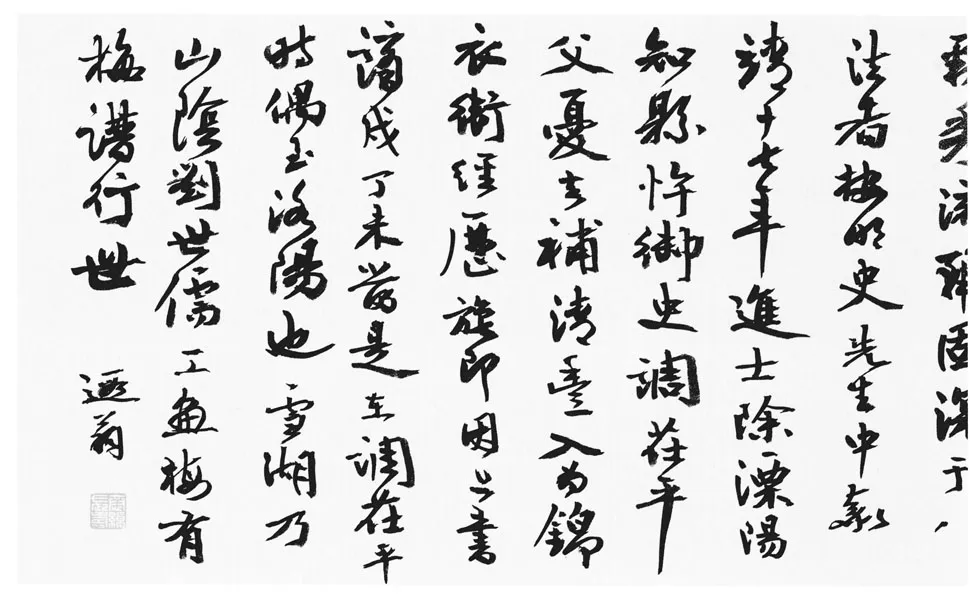 固深于
法者按明史先生中嘉
靖十七年進士除溧陽
知縣忤御史調茌平
父憂去補清豐入為錦
衣衛經歷旋即因上書
謫戍丁未當是在調茌平
時偶至洛陽也雪湖乃
山陰劉世儒工畫梅有
梅譜行世 遯翁